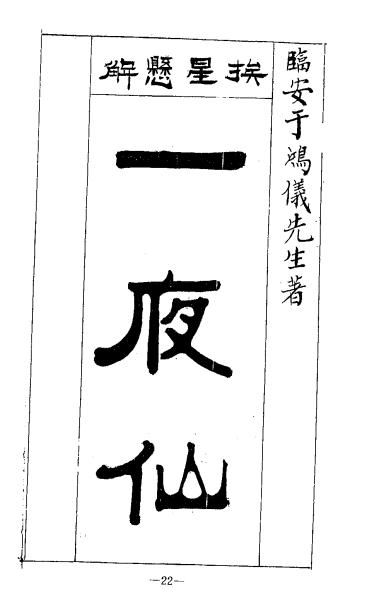 臨安于鴻儀先生著
挨星懸解
一夜仙
—22—